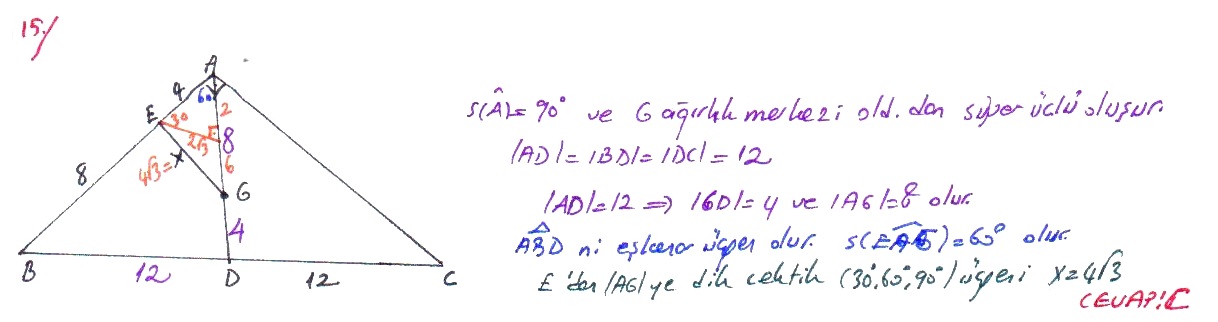 15/
A
4
60
2
E
30
F
2√3
8
8
4√3=x
6
G
4
B
12
D
12
C
s(Â)=90° ve G ağırlık merkezi old. dan süper üçlü oluşur.
|AD|=|BD|=|DC|=12
|AD|=12 ⇒ |GD|=4 ve |AG|=8 olur.
ABD ni eşkenar üçgen olur. s(EAG)=60° olur.
E'den |AG| ye dik çektik (30°,60°,90°) üçgeni x=4√3
CEVAP: C